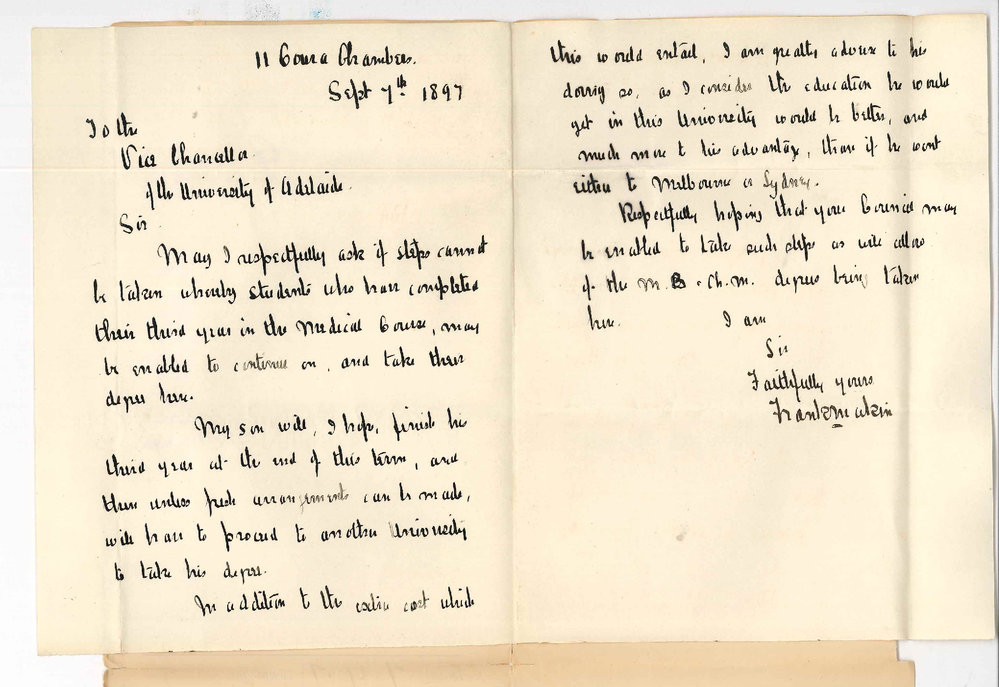 11 Cowra Chambers.
Sept 7th 1897
To the
Vice Chancellor
of the University of Adelaide.
Sir
May I respectfully ask if steps cannot
be taken whereby students who have completed
their third year in the Medical Course, may
be enabled to continue on, and take their
degree here.
My son will, I hope, finish his
third year at the end of this term, and
then unless fresh arrangements can be made,
will have to proceed to another University
to take his degree.
In addition to the extra cost which
this would entail, I am greatly adverse to his
doing so, as I consider the education he would
get in this University would be better, and
much more to his advantage, than if he went
either to Melbourne or Sydney.
Respectfully hoping that your Council may
be enabled to take such steps as will allow
of the M.B. Ch.M. degrees being taken
here. I am
Sir
Faithfully yours
Frank Makin